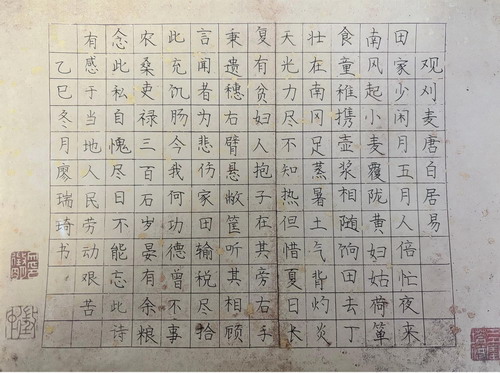 观刈麦唐白居易
田家少闲月五月人倍忙夜来
南风起小麦覆陇黄妇姑荷箪
食童稚携壶浆相随饷田去丁
壮在南冈足蒸暑土气背灼炎
天光力尽不知热但惜夏日长
复有贫妇人抱子在其旁右手
秉遗穗右臂悬敝筐听其相顾
言闻者为悲伤家田输税尽拾
此充饥肠今我何功德曾不事
农桑吏禄三百石岁晏有余粮
念此私自愧尽日不能忘此诗
有感于当地人民劳动艰苦
乙巳冬月廖瑞琦书